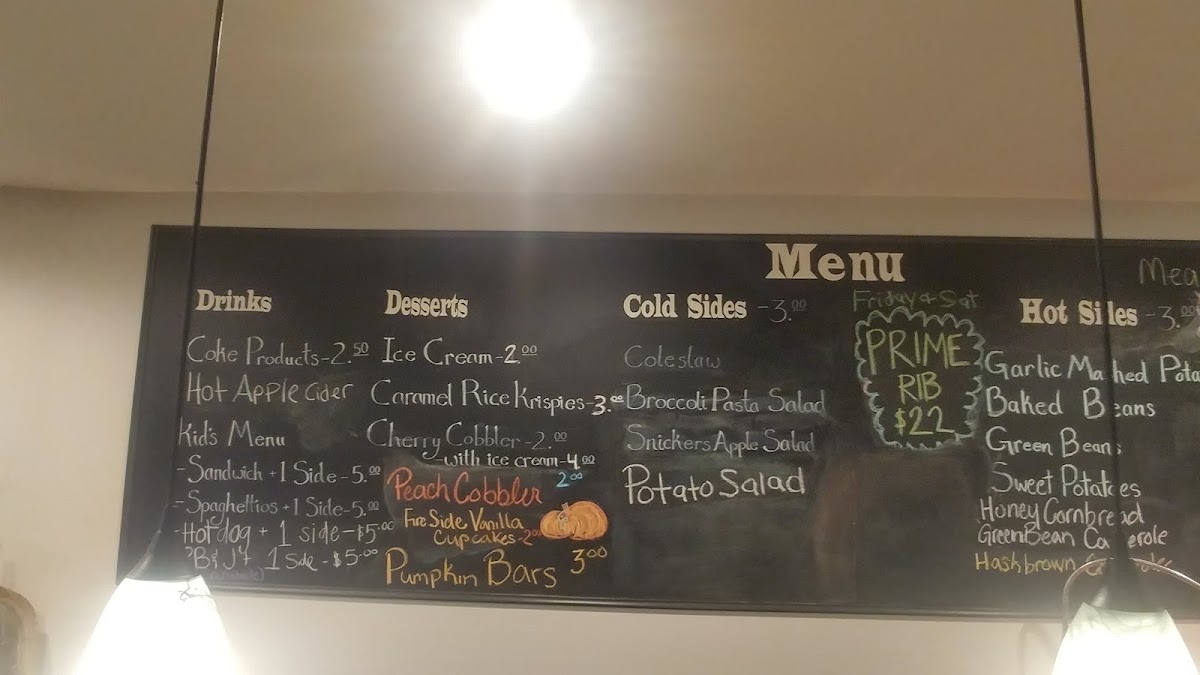 Menu
Drinks
Coke Products-2.50
Hot Apple Cider
Kid's Menu
-Sandwich +1 Side-5.00
-Spaghettios+1 Side-5.00
-Hotdog + 1 side-$5.00
PB&J+ 1 Side-$5.00
Desserts
Ice Cream-2.00
Caramel Rice Krispies-3.00
Cherry Cobbler-2.00
with ice cream-4.00
Peach Cobbler 2.00
Fire Side Vanilla
Cupcakes-2.00
Pumpkin Bars 3.00
Cold Sides -3.00
Coleslaw
Broccoli Pasta Salad
Snickers Apple Salad
Potato Salad
Friday & Sat
PRIME
RIB
$22
Mea
Hot Sides -3.00
Garlic Mashed Pota
Baked Beans
Green Beans
Sweet Potatoes
Honey Cornbread
GreenBean Casserole
Hashbrown